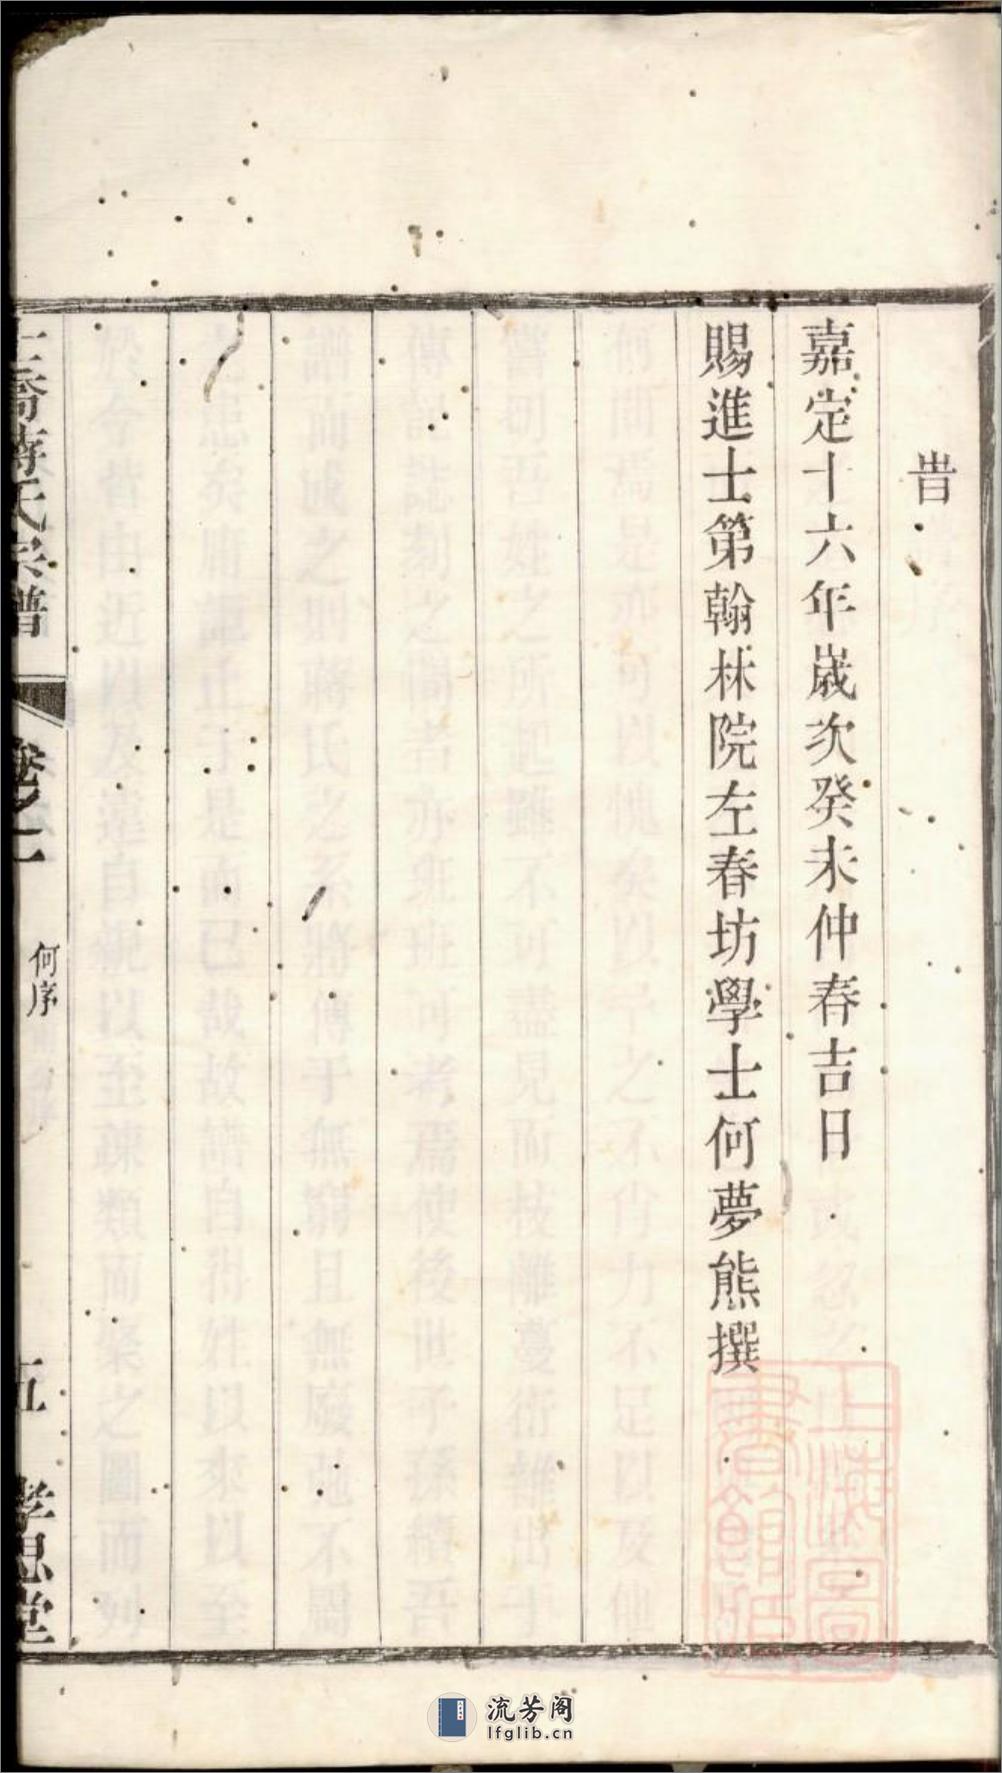 旹
嘉定十六年歲次癸未仲春吉日
賜進士第翰林院左春坊學士何夢熊撰
蔣氏宗譜
卷之一
何序
五
孝思堂
上海圖書館藏
流芳阁
lfglib.cn